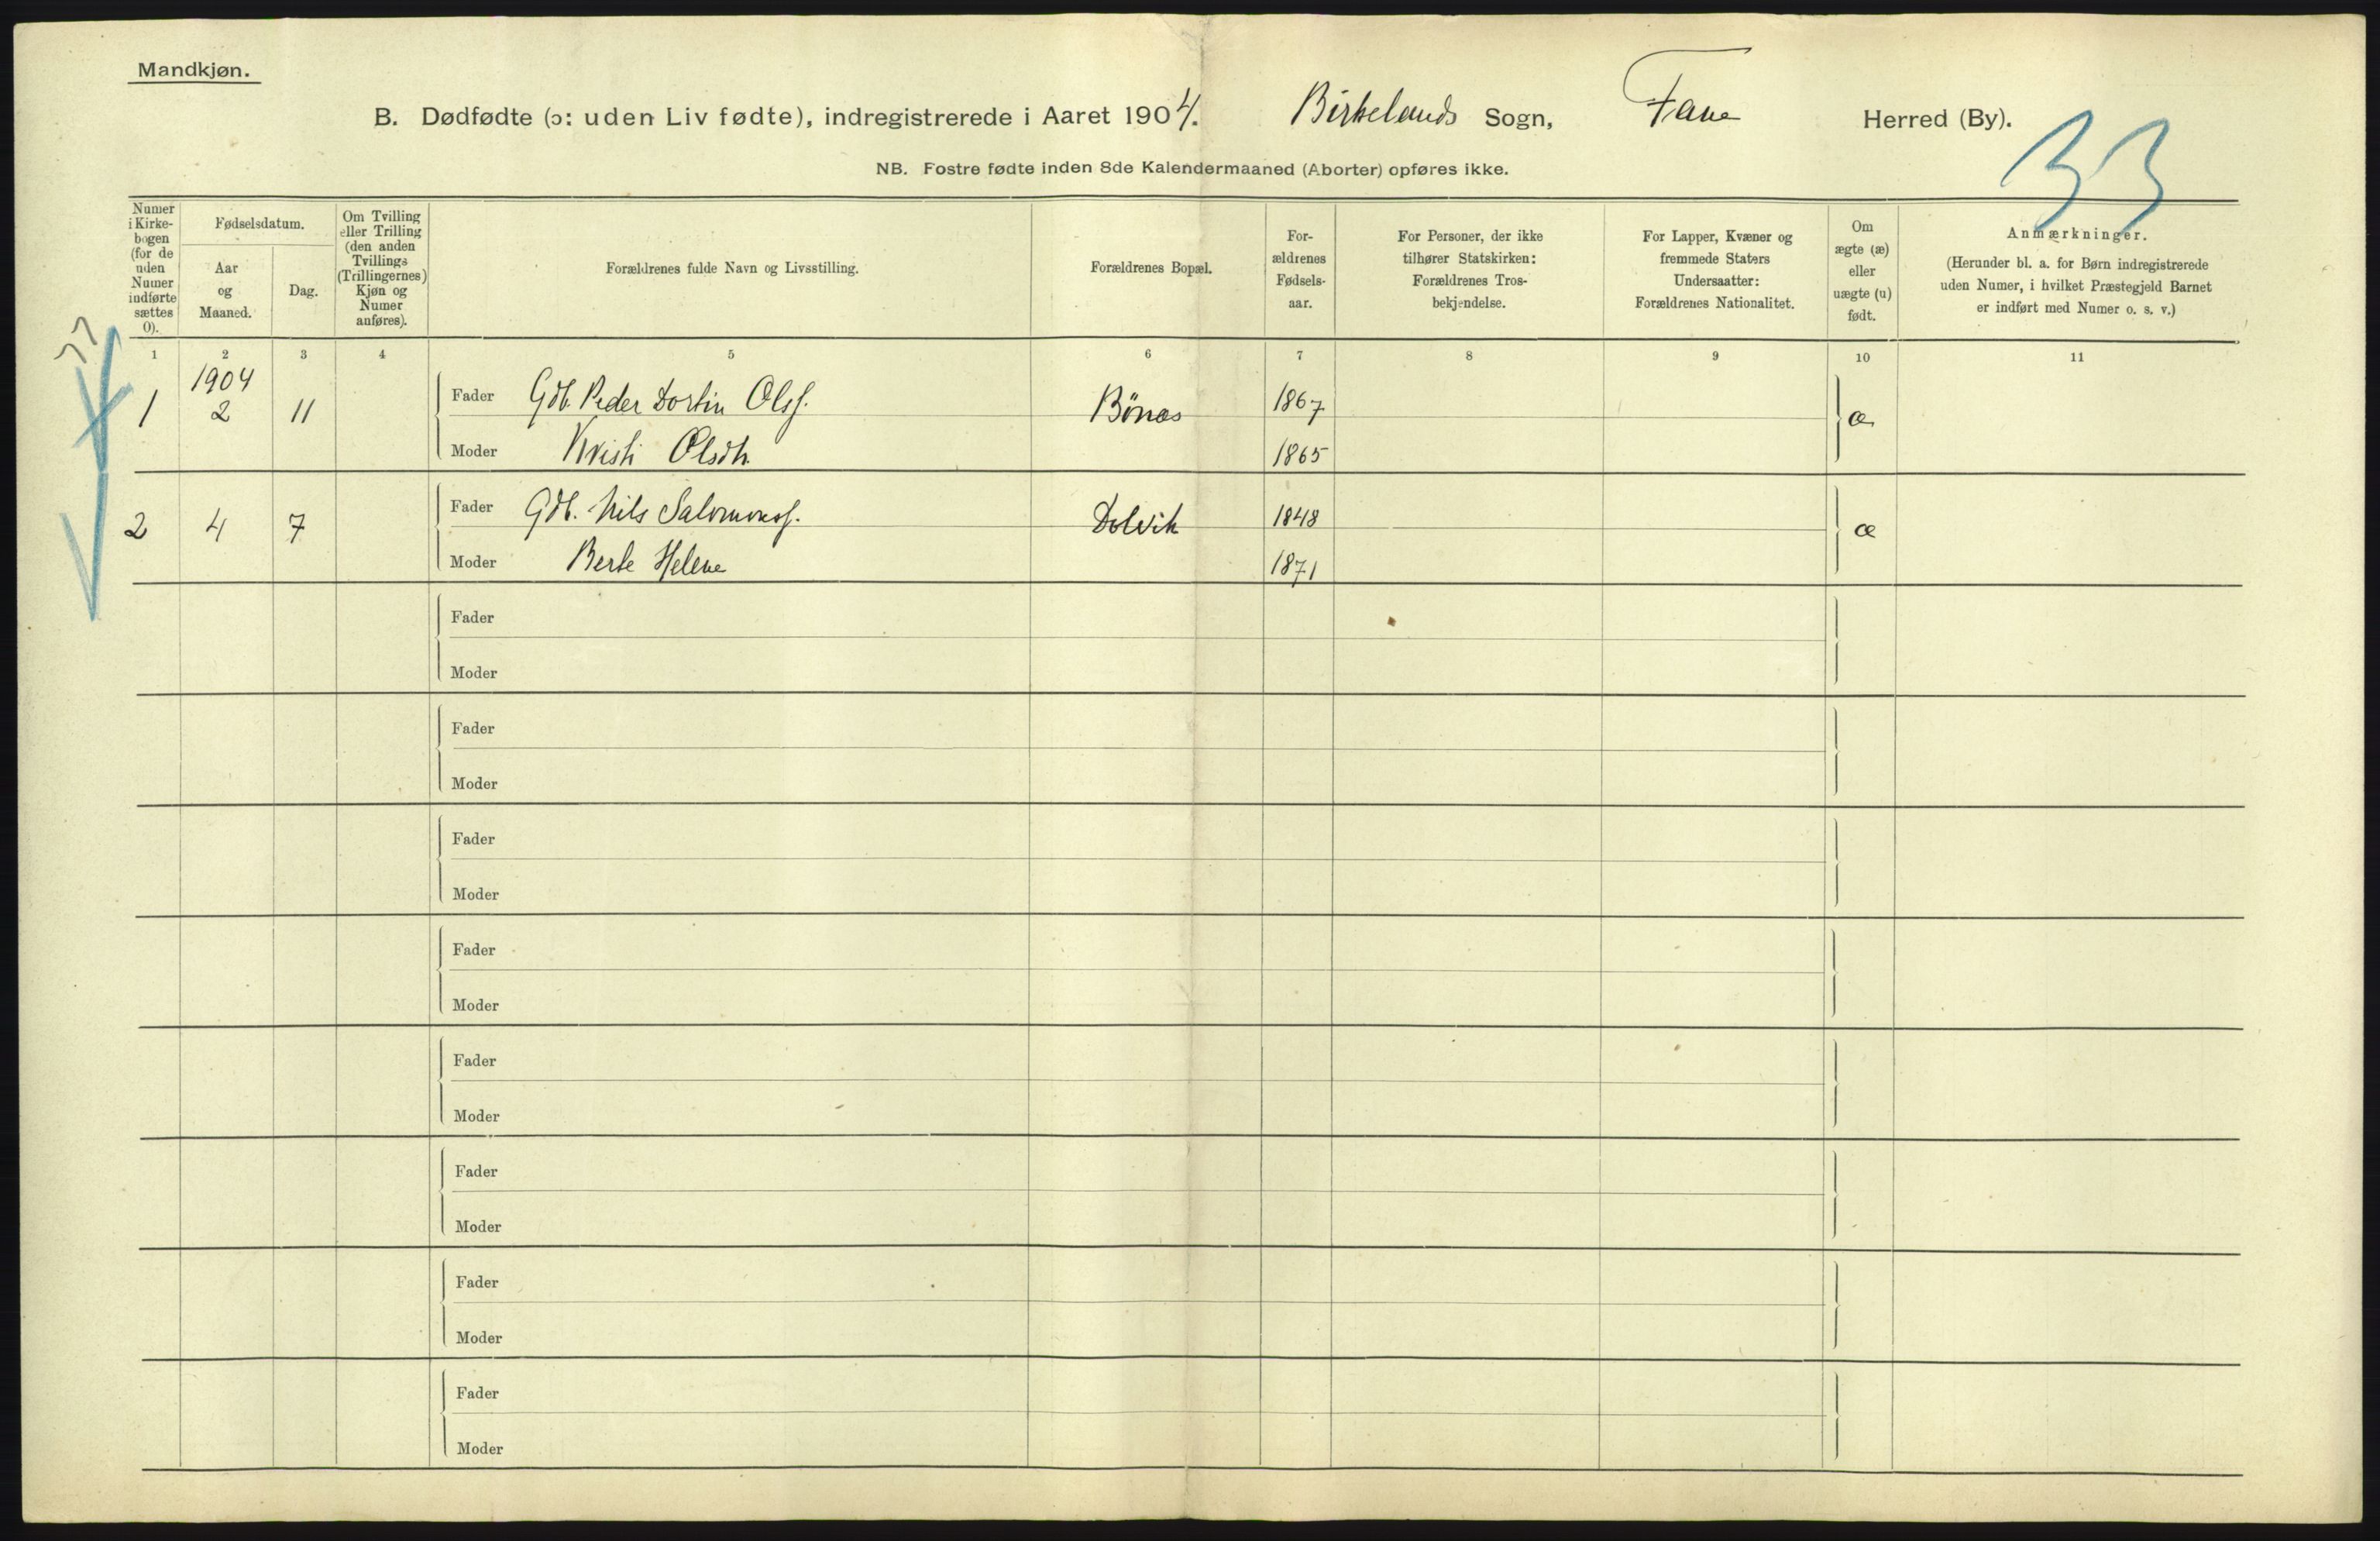 Mandkjøn.
B. Dødfødte (ɔ: uden Liv fødte), indregistrerede i Aaret 1904. Birkelands Sogn, Fane Herred (By).
33
NB. Fostre fødte inden 8de Kalendermaaned (Aborter) opføres ikke.
Numer i Kirke-bogen (for de uden Numer indførte sættes 0).
Fødselsdatum.
Aar og Maaned.
Dag.
Om Tvilling eller Trilling (den anden Tvillings (Trillingernes) Kjøn og Numer anføres).
Forældrenes fulde Navn og Livsstilling.
Forældrenes Bopæl.
For-ældrenes Fødsels-aar.
For Personer, der ikke tilhører Statskirken: Forældrenes Tros-bekjendelse.
For Lapper, Kvæner og fremmede Staters Undersaatter: Forældrenes Nationalitet.
Om ægte (æ) eller uægte (u) født.
Anmærkninger.
(Herunder bl. a. for Børn indregistrerede uden Numer, i hvilket Præstegjeld Barnet er indført med Numer o. s. v.)
1 2 3 4 5 6 7 8 9 10 11
1904
1 2 11 Fader Gdb. Peder Dortin Olss. Bönæs 1867 æ
Moder Kristi Olsdtr. 1865
2 4 7 Fader Gdb. Nils Salomonss. Dolvik 1848 æ
Moder Berte Helene 1871
Fader
Moder
Fader
Moder
Fader
Moder
Fader
Moder
Fader
Moder
Fader
Moder
Fader
Moder
Fader
Moder